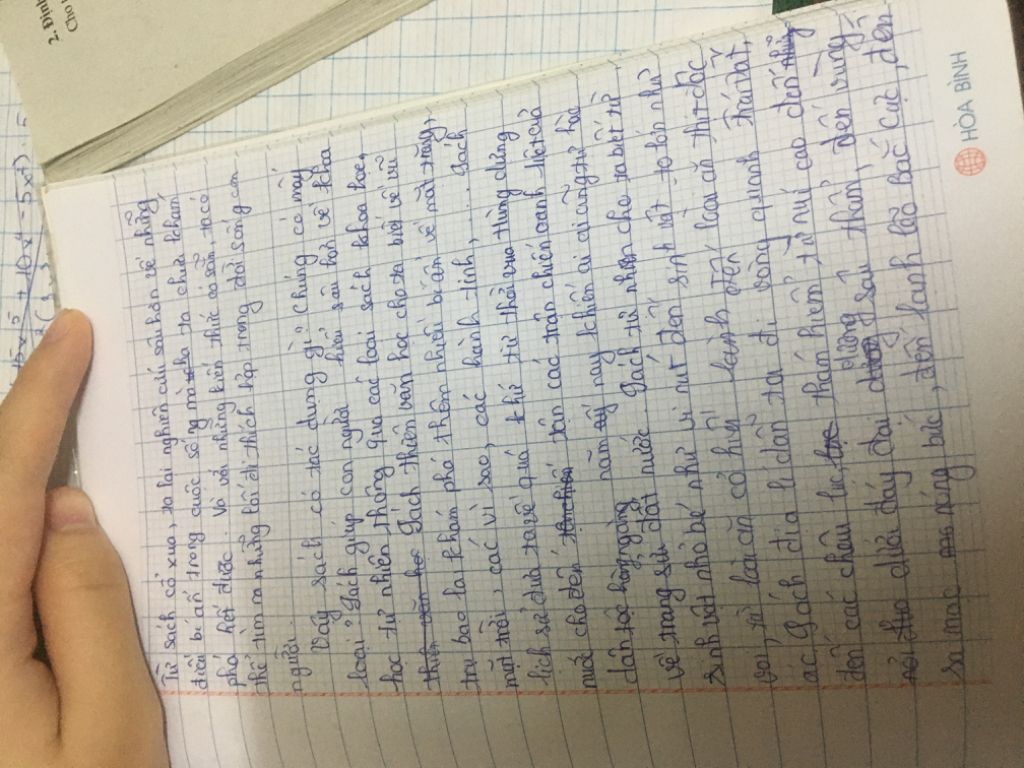 2. Định
Cho
Từ sách cổ xưa, ta lại nghiên cứu sâu hơn về những
điều bí ẩn trong cuộc sống mà ta chưa khám
phá hết được. Và với những kiến thức có sẵn, ta có
thể tìm ra những lời giải thích hợp trong đời sống con
người.
Vậy sách có tác dụng gì? Chúng có mấy
loại? Sách giúp con người hiểu sâu hơn về khoa
học tự nhiên, thông qua các loại sách khoa học,
Sách thiên văn học cho ta biết về vũ
trụ bao la, khám phá thêm nhiều bí ẩn về mặt trăng,
mặt trời, các vì sao, các hành tinh,... Sách
lịch sử đưa ta về quá khứ từ thời vua Hùng dựng
nước cho đến tận các trận chiến oanh liệt của
dân tộc hàng ngàn năm nay khiến ai ai cũng tự hào
về trang sử đất nước. Sách tự nhiên cho ta biết từ
sinh vật nhỏ bé như vi rút đến sinh vật to lớn như
voi, từ loài ăn cỏ hiền lành đến loài ăn thịt độc
ác. Sách địa lí dẫn ta đi vòng quanh Trái Đất,
đến các châu lục, thám hiểm từ núi cao đến
dưới đáy đại dương sâu thẳm, đến vùng
sa mạc nóng bức, đến lạnh lẽo Bắc Cực, đến
HOA BÌNH